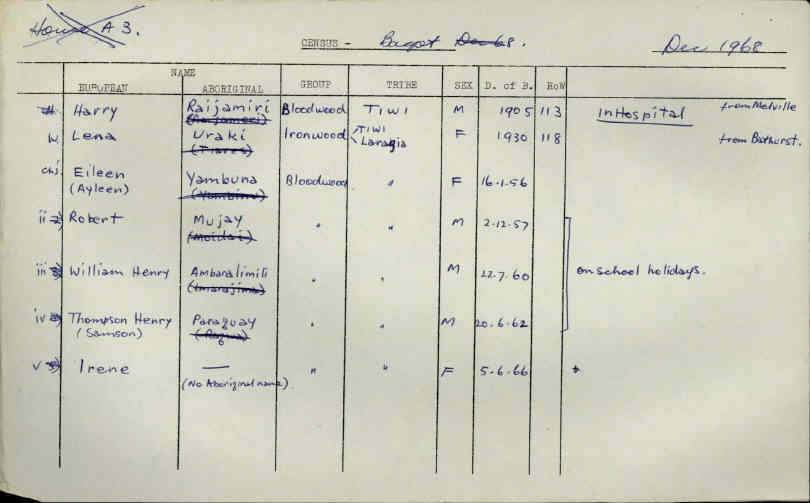 House A 3.
CENSUS - Bagot Dec 68. Dec 1968
NAME
EUROPEAN ABORIGINAL GROUP TRIBE SEX D. of B. RoW
H Harry Raijamiri Bloodwood TIWI M 1905 113 in Hospital from Melville
W. Lena Uraki Ironwood TIWI F 1930 118 from Bathurst.
(Tiares) Laragia
chj. Eileen Yambuna Bloodwood " F 16-1-56
(Ayleen) (Yambinu)
ii Robert Mujay " " M 2-12-57
(Moidai)
iii William Henry Ambaralimili " " M 22.7.60 on school holidays.
(Imarajima)
iv Thompson Henry Paraguay " " M 20-6-62
(Samson)
v Irene — " " F 5-6-66
(No Aboriginal name)